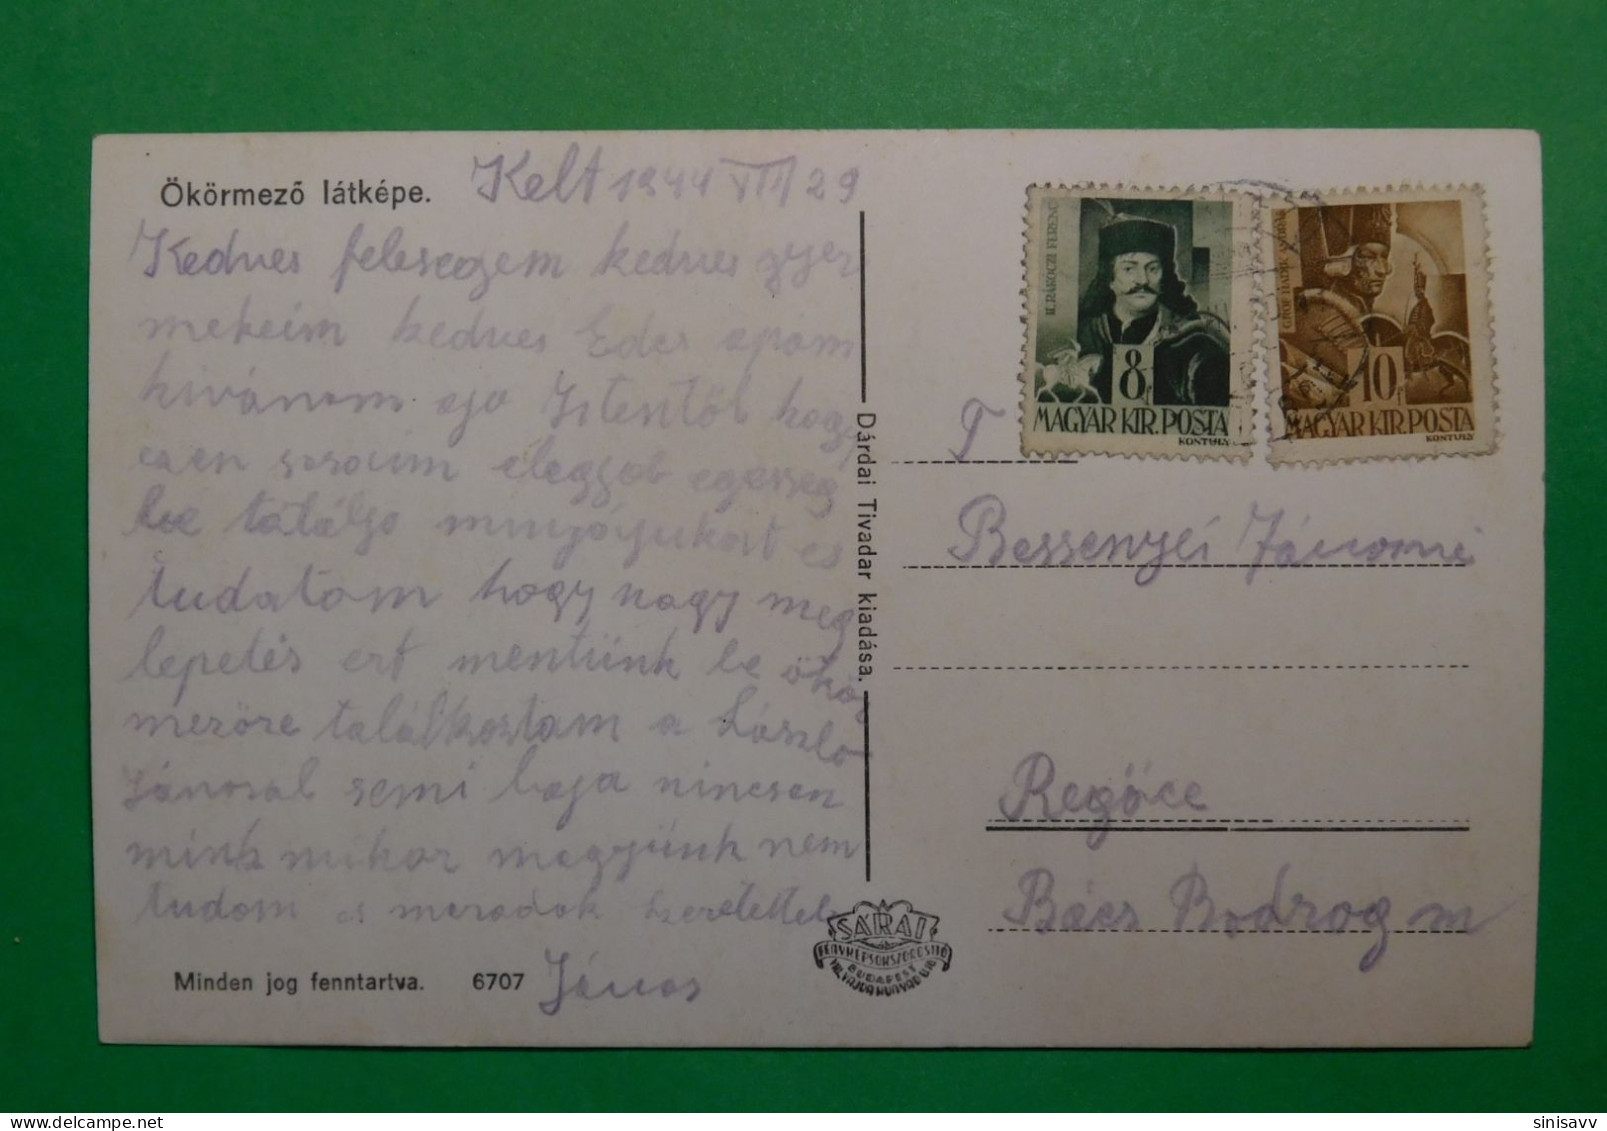 Ökörmező látképe.
Kelt 1944 VIII 29
Kedves felesegem kedves gyer
mekeim kedves Edes apám
kivánom ajo Istentöl hogy
ezen soraim eleggjob egesseg
be találja mnyájukat es
tudatom hogy nagy meg
lepetés ert mentünk be ökör
mezöre találkoztam a László
Jánosal semi baja nincsen
mink mikor megyünk nem
tudom es maradok szeretettel
János
Minden jog fenntartva. 6707
Dárdai Tivadar kiadása.
SARAI
FÉNYKÉPSOKSZOROSITÓ
BUDAPEST
II. RÁKÓCZI FERENC
8f
MAGYAR KIR. POSTA
KONTULY
GRÓF HADIK ANDRÁS
10f
MAGYAR KIR. POSTA
KONTULY
T
Bessenyei Jánosné
Regőce
Bács Bodrog m
delcampe.net
sinisavv